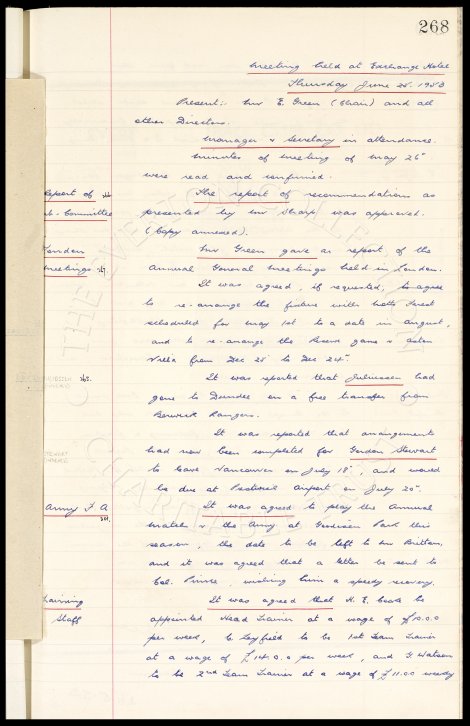 268
Meeting held at Exchange Hotel
Thursday June 25. 1953
Present:- Mr E. Green (Chair) and all
other Directors.
Manager & Secretary in attendance.
Minutes of meeting of May 26th
were read and confirmed.
Report of
Sub-Committee
The report of recommendations as
presented by Mr Sharp, was approved.
(Copy annexed).
London
Meetings
Mr Green gave a report of the
Annual General Meetings held in London.
It was agreed, if requested, to agree
to re-arrange the fixture with Notts Forest
scheduled for May 1st to a date in August,
and to re-arrange the Reserve game v Aston
Villa from Dec 25 to Dec 24th.
It was reported that Juliussen had
gone to Dundee on a free transfer from
Berwick Rangers.
It was reported that arrangements
had now been completed for Gordon Stewart
to leave Vancouver on July 18th, and would
be due at Prestwick Airport on July 20th.
Army F A
It was agreed to play the Annual
match v the Army at Goodison Park this
season, the date to be left to Mr Britton,
and it was agreed that a letter be sent to
Col. Prince, wishing him a speedy recovery.
Training
Staff
It was agreed that H. E. Cooke be
appointed Head Trainer at a wage of
per week, C. Leyfield to be 1st Team Trainer
at a wage of £14.0.0 per week, and G. Watson
to be 2nd Team Trainer at a wage of £11.00 weekly